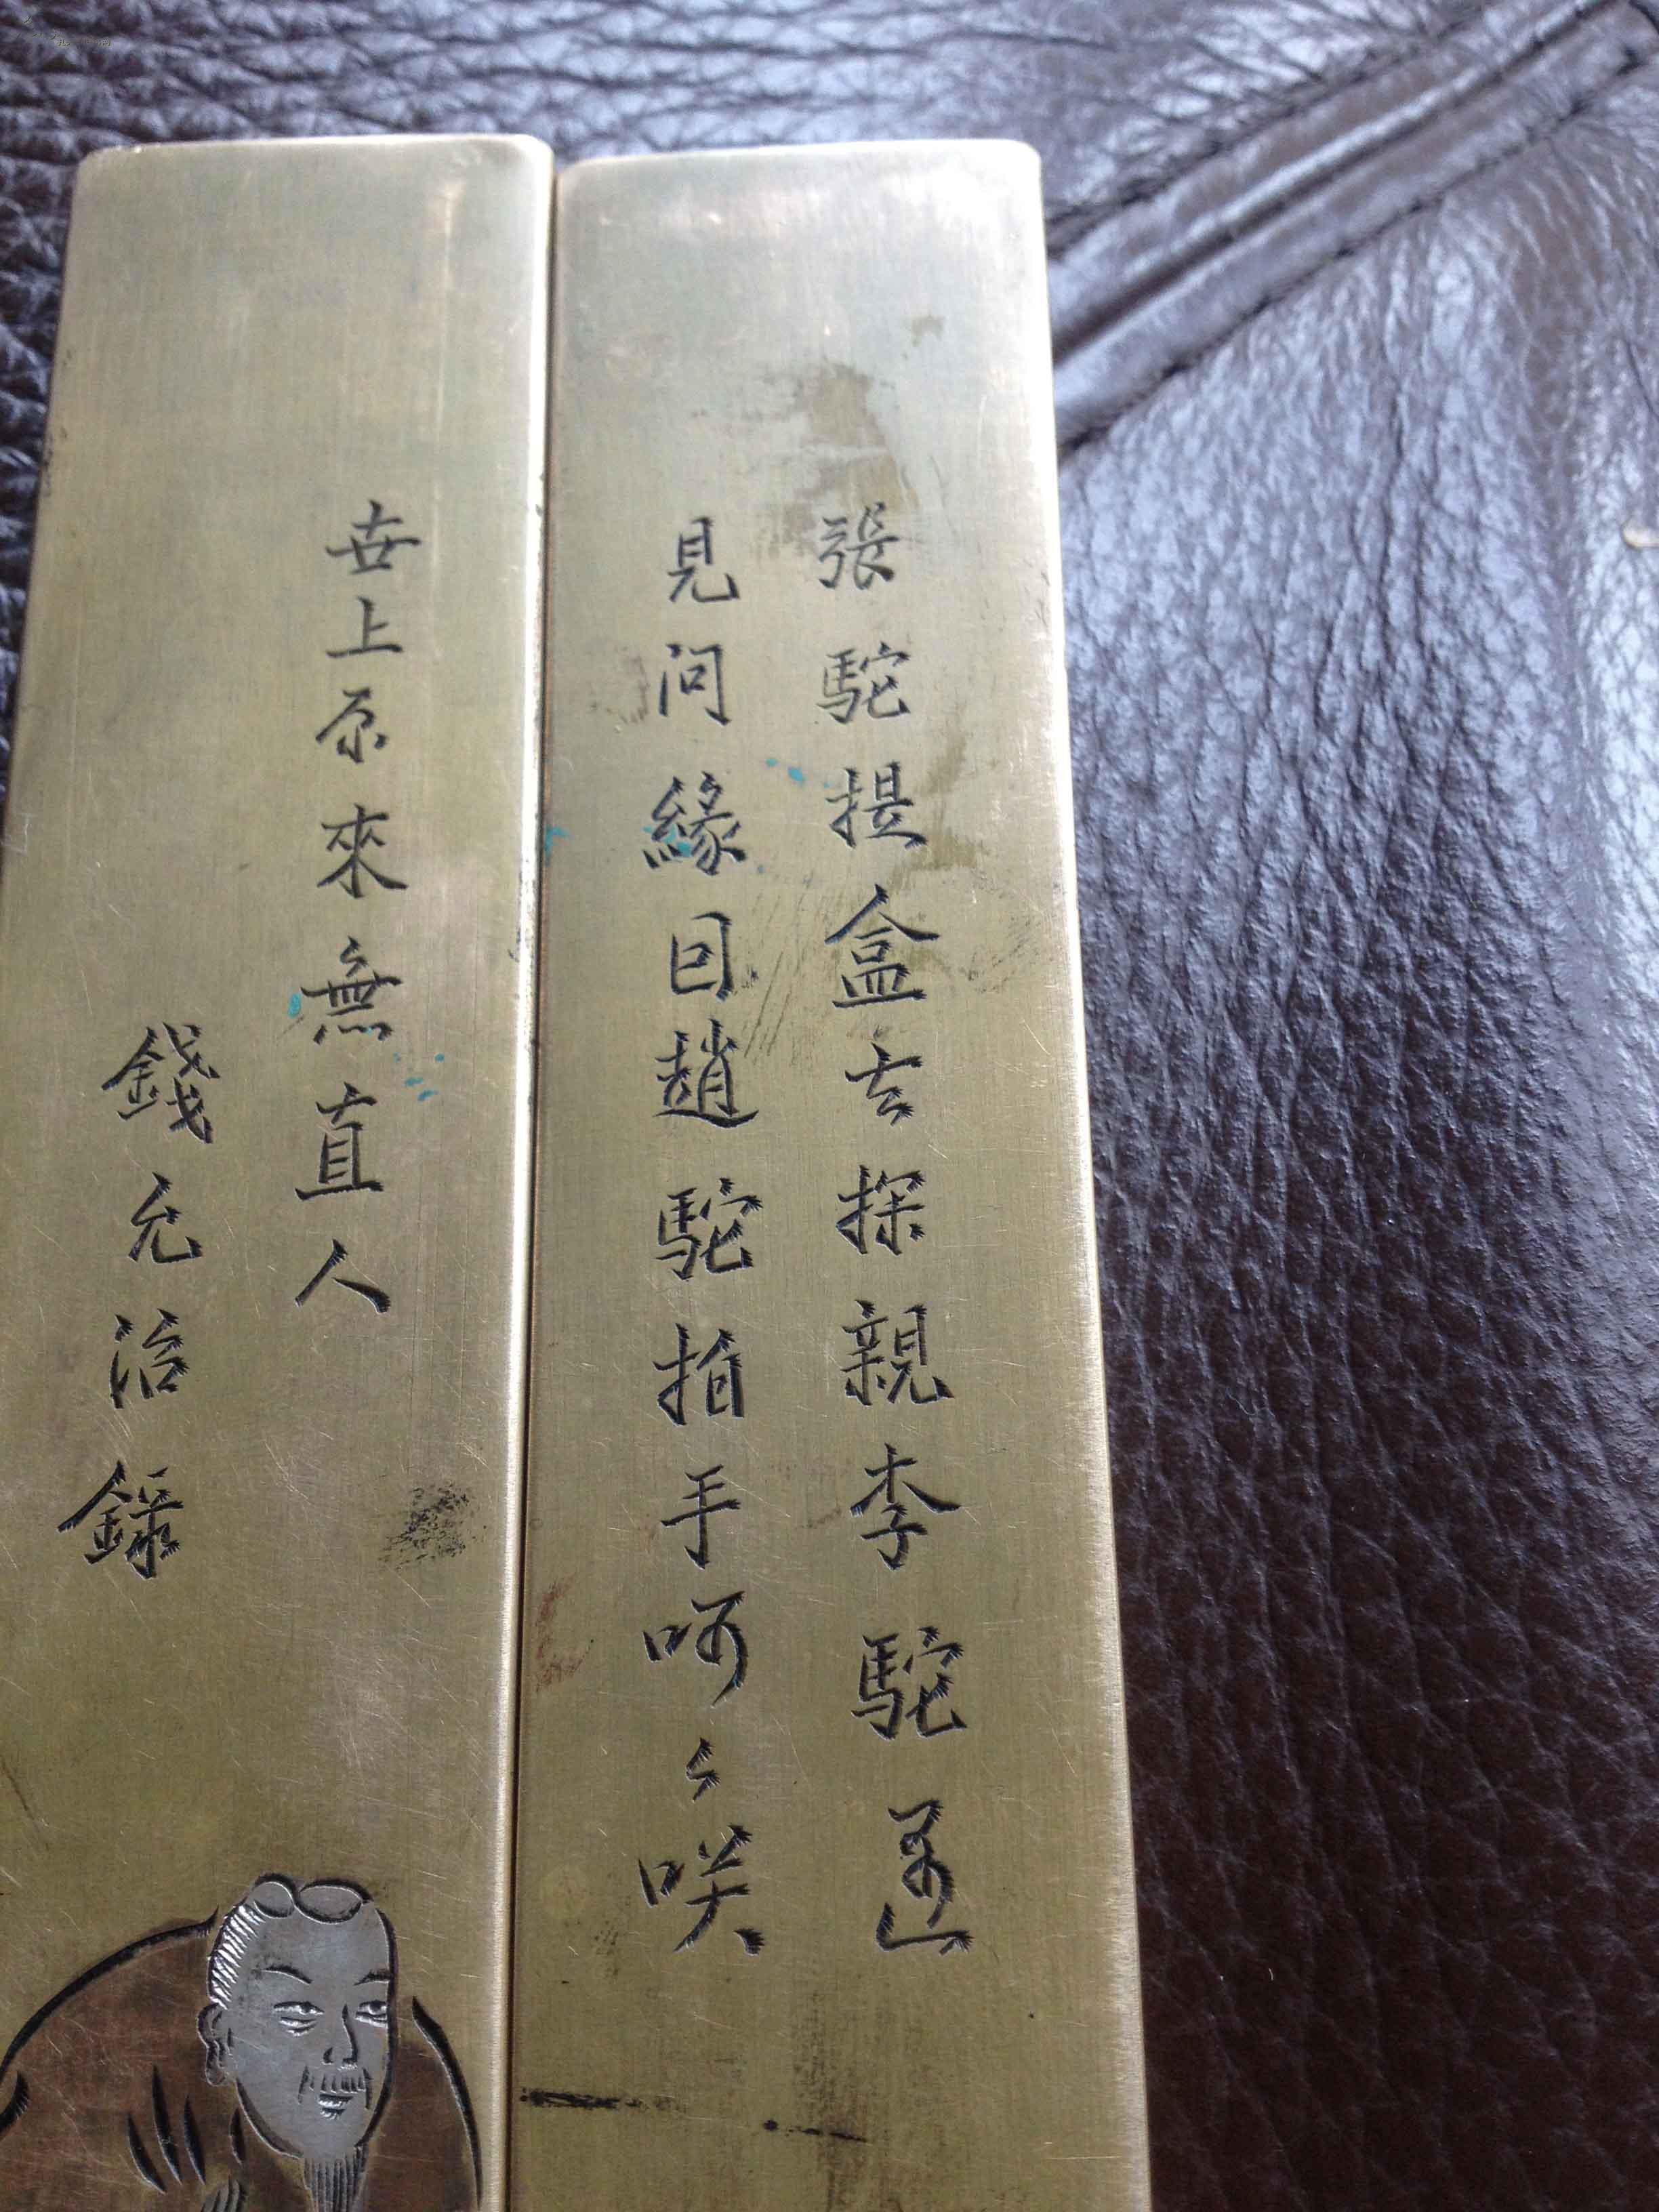 張駝提盒去探親李駝遇
見问緣因趙駝拍手呵々咲
世上原來無直人
錢允治錄